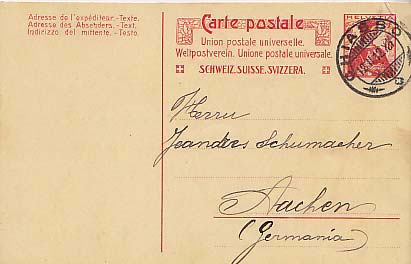 Adresse de l'expéditeur.-Texte.
Adresse des Absenders.-Text.
Indirizzo del mittente.-Testo.
Carte postale
Union postale universelle.
Weltpostverein. Unione postale universale.
SCHWEIZ.SUISSE.SVIZZERA.
HELVETIA
CHIASSO
Herrn
Jeandres Schumacher
Aachen
(Germania)